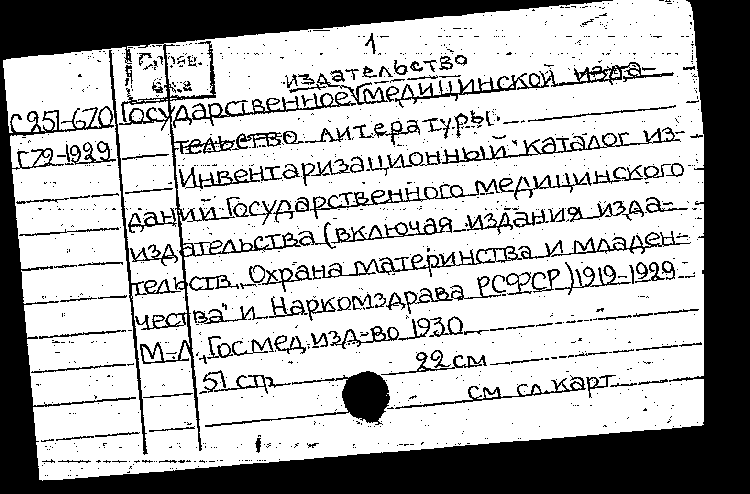 1
Справ.
б-ка
издательство
С251-670 Государственное медицинской изда-
Г79-1929 тельство литературы.
Инвентаризационный каталог из-
даний Государственного медицинского
издательства (включая издания изда-
тельств „Охрана материнства и младен-
чества" и Наркомздрава РСФСР) 1919-1929
М.-Л., Госмедизд-во 1930
51 стр 22 см
см сл. карт.